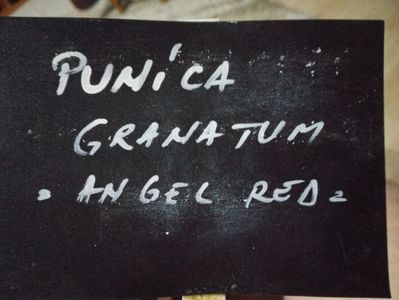 PUNICA
GRANATUM
"ANGEL RED"